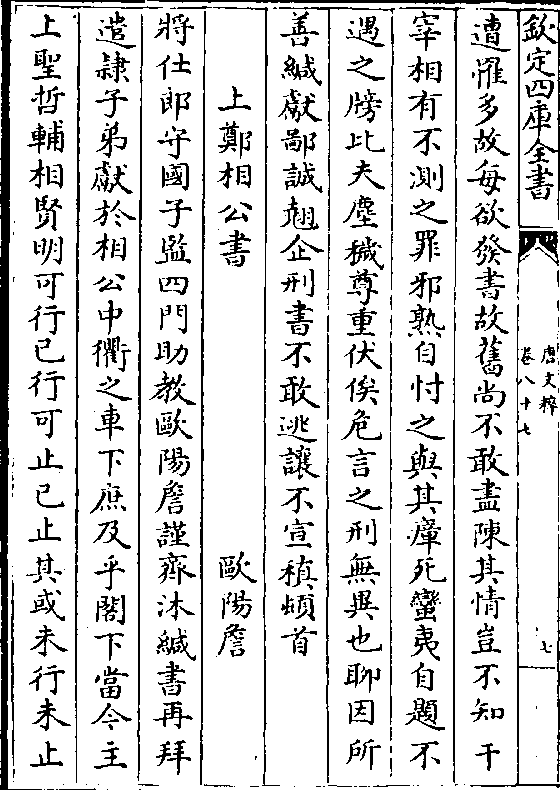 欽定四庫全書
唐文粹
卷八十七
七
遭罹多故每欲發書故舊尚不敢盡陳其情豈不知干
宰相有不測之罪邪熟自忖之與其瘴死蠻夷自題不
遇之牓比夫塵穢尊重伏俟危言之刑無異也聊因所
善緘獻鄙誠翹企刑書不敢逃讓不宣稹頓首
上鄭相公書
歐陽詹
將仕郎守國子監四門助教歐陽詹謹齋沐緘書再拜
遣隷子弟獻於相公中衢之車下庶及乎閤下當今主
上聖哲輔相賢明可行已行可止已止其或未行未止